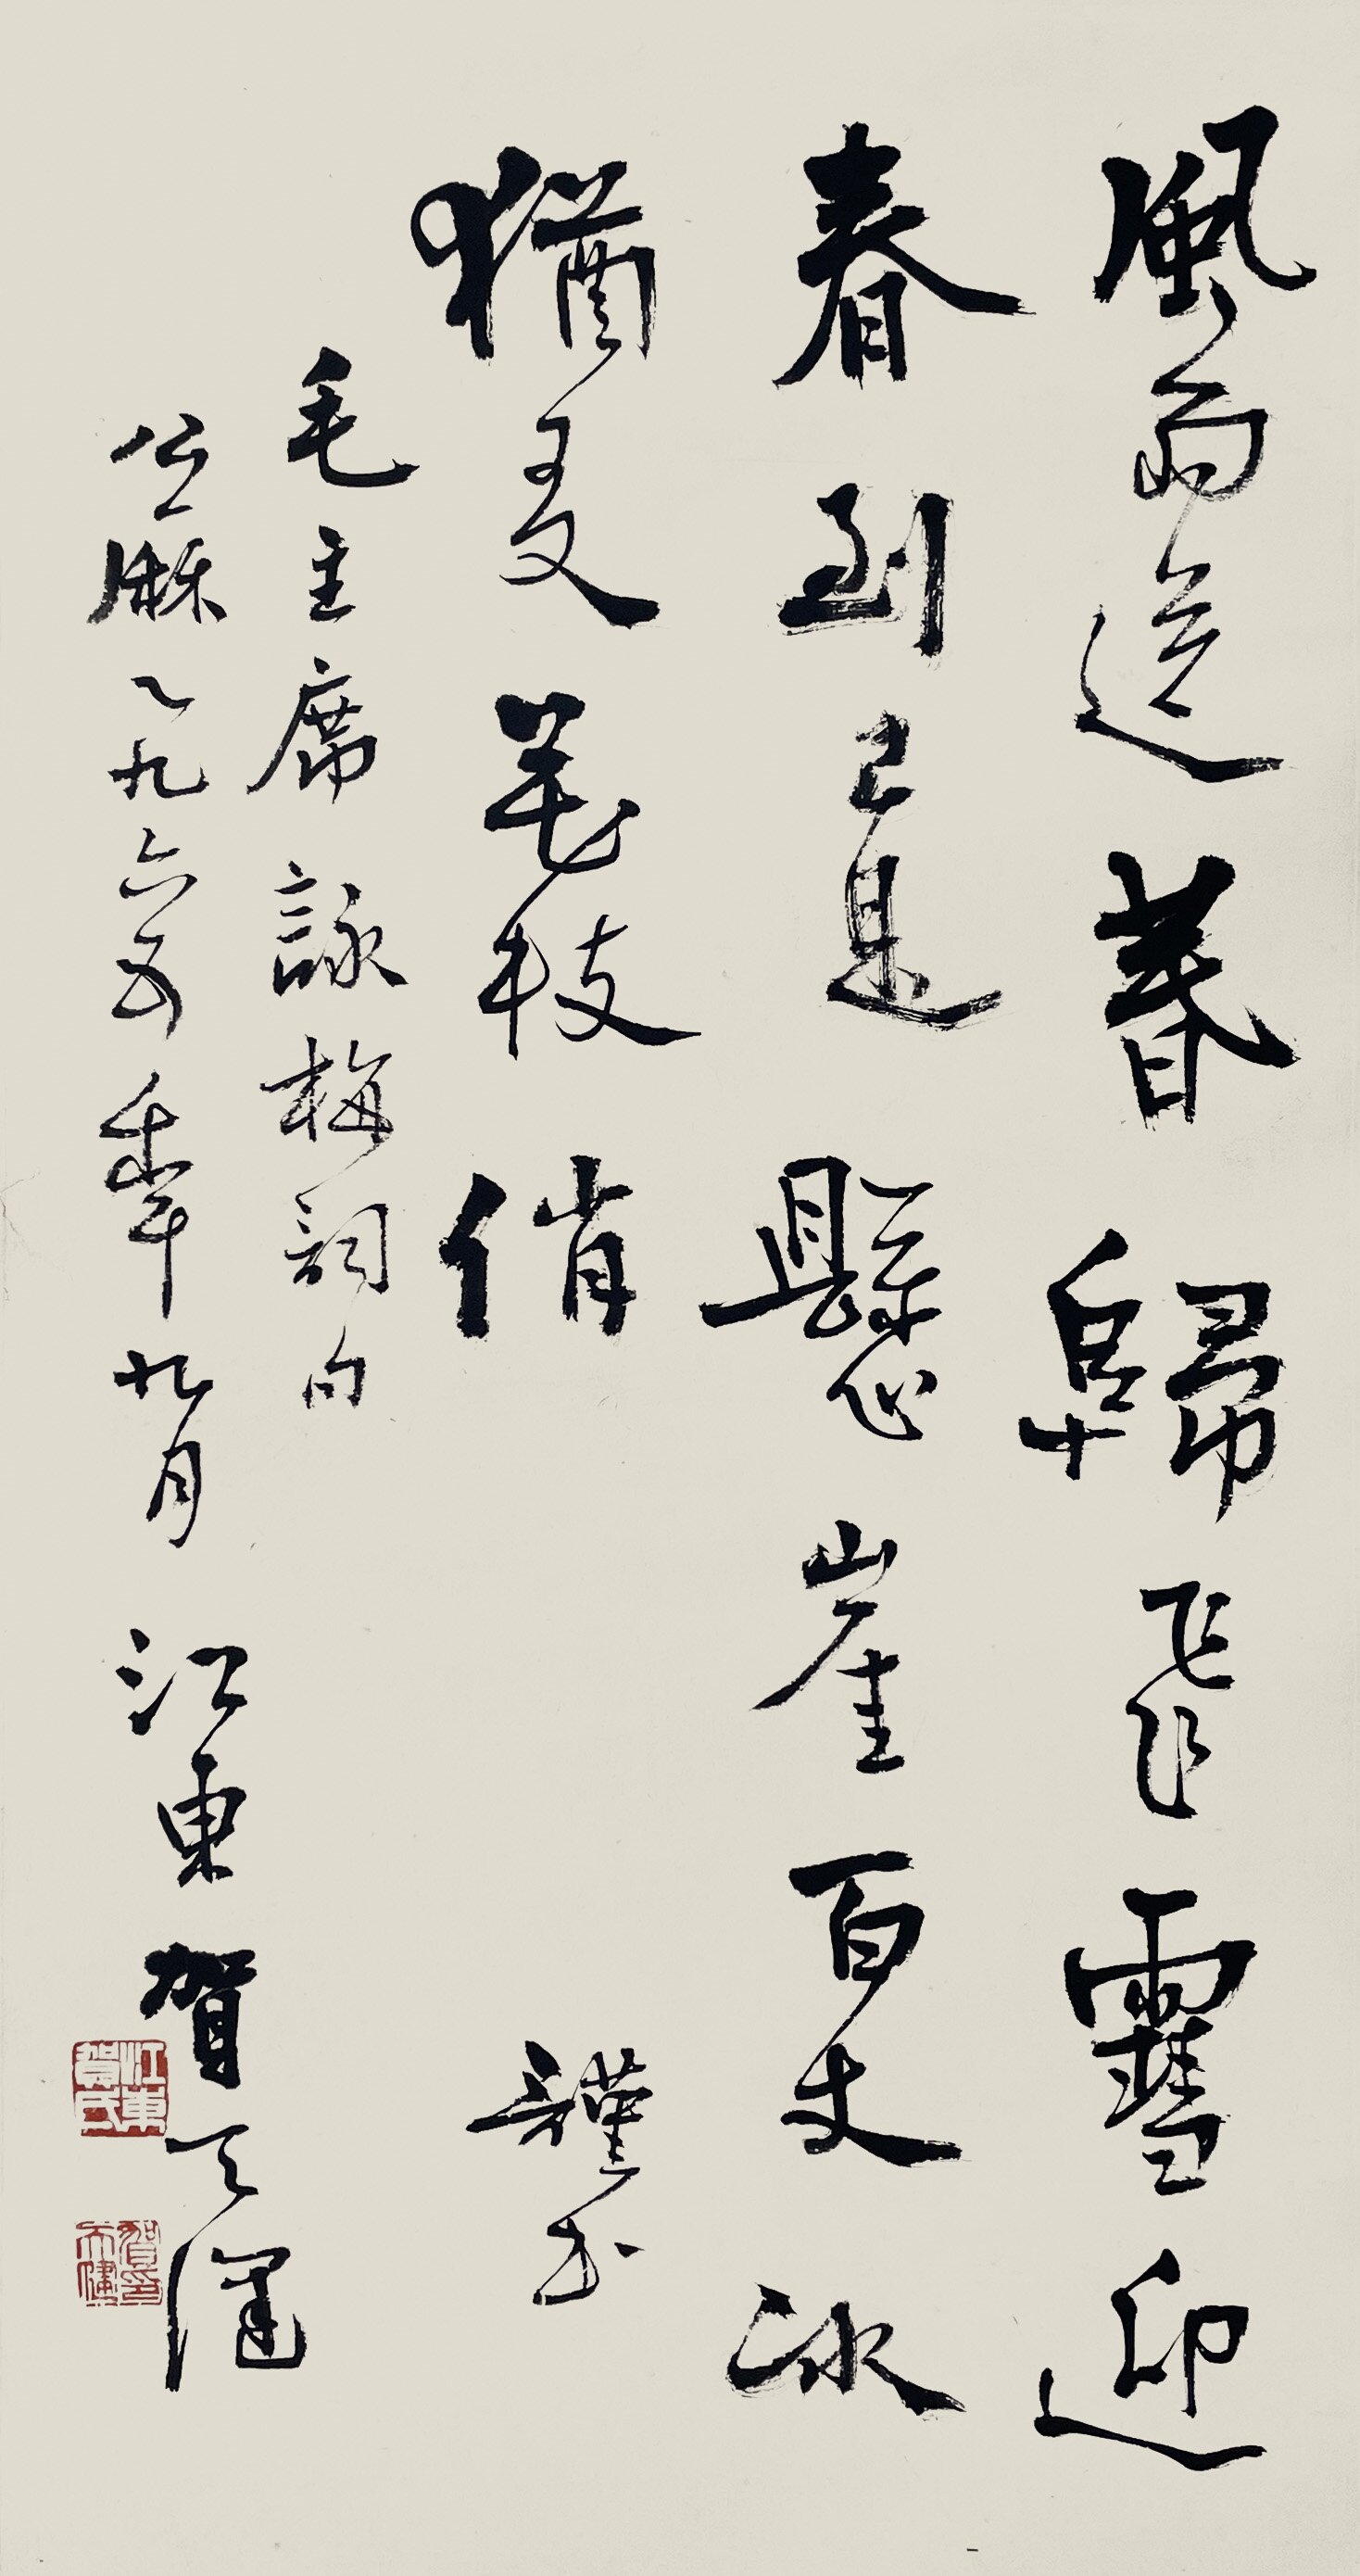 風雨送春歸飛雪迎
春到已是懸崖百丈冰
猶更花枝俏 謹書
毛主席詠梅詞句
公厤一九六五年九月 江東賀天健
江東賀氏
賀天健印